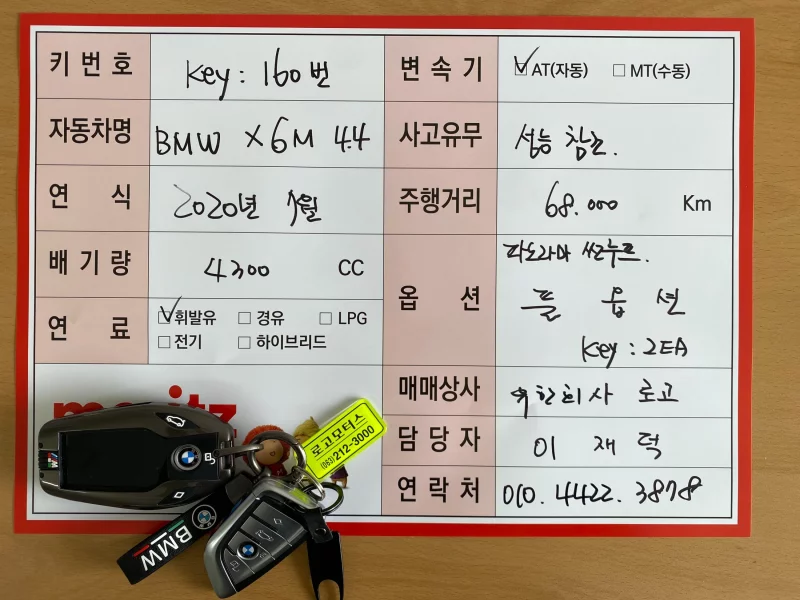 키 번 호 Key : 160번
변 속 기 ☑ AT(자동) ☐ MT(수동)
자동차명 BMW X6M 4.4
사고유무 성능 참고.
연 식 2020년 1월
주행거리 68.000 Km
배 기 량 4300 CC
옵 션 파노라마 썬루프.
풀 옵 션
Key : 2EA
연 료 ☑ 휘발유 ☐ 경유 ☐ LPG
☐ 전기 ☐ 하이브리드
매매상사 주)한회사 로고
담 당 자 이 재 덕
연 락 처 010. 4422. 3878
로고모터스
(063)212-3000
BMW